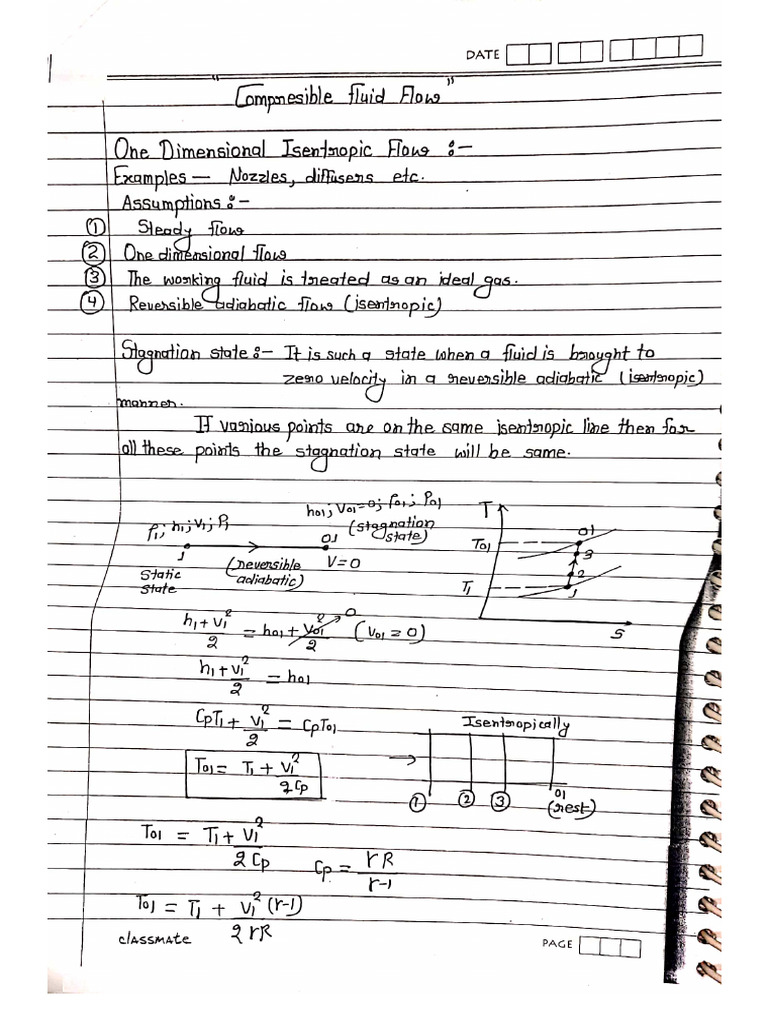 DATE
"Compresible fluid Flow"
One Dimensional Isentropic Flow :-
Examples — Nozzles, diffusers etc.
Assumptions :-
① Steady flow
② One dimensional flow
③ The working fluid is treated as an ideal gas.
④ Reversible adiabatic flow (isentropic)
Stagnation state :- It is such a state when a fluid is brought to
zero velocity in a reversible adiabatic (isentropic)
manner.
If various points are on the same isentropic line then for
all these points the stagnation state will be same.
h01; V01=0; ρ01; P01
(stagnation
state)
ρ1; h1; V1; P1
1
01
V=0
Static
State
(reversible
adiabatic)
T
T01
T1
01
3
2
1
S
h1 + V1²/2 = h01 + V01²/2 0 (V01 = 0)
h1 + V1²/2 = h01
CpT1 + V1²/2 = CpT01
T01 = T1 + V1²/2Cp
Isentropically
① ② ③ 01
(rest)
T01 = T1 + V1²/2Cp
Cp = rR/r-1
T01 = T1 + V1²(r-1)/2rR
classmate
PAGE